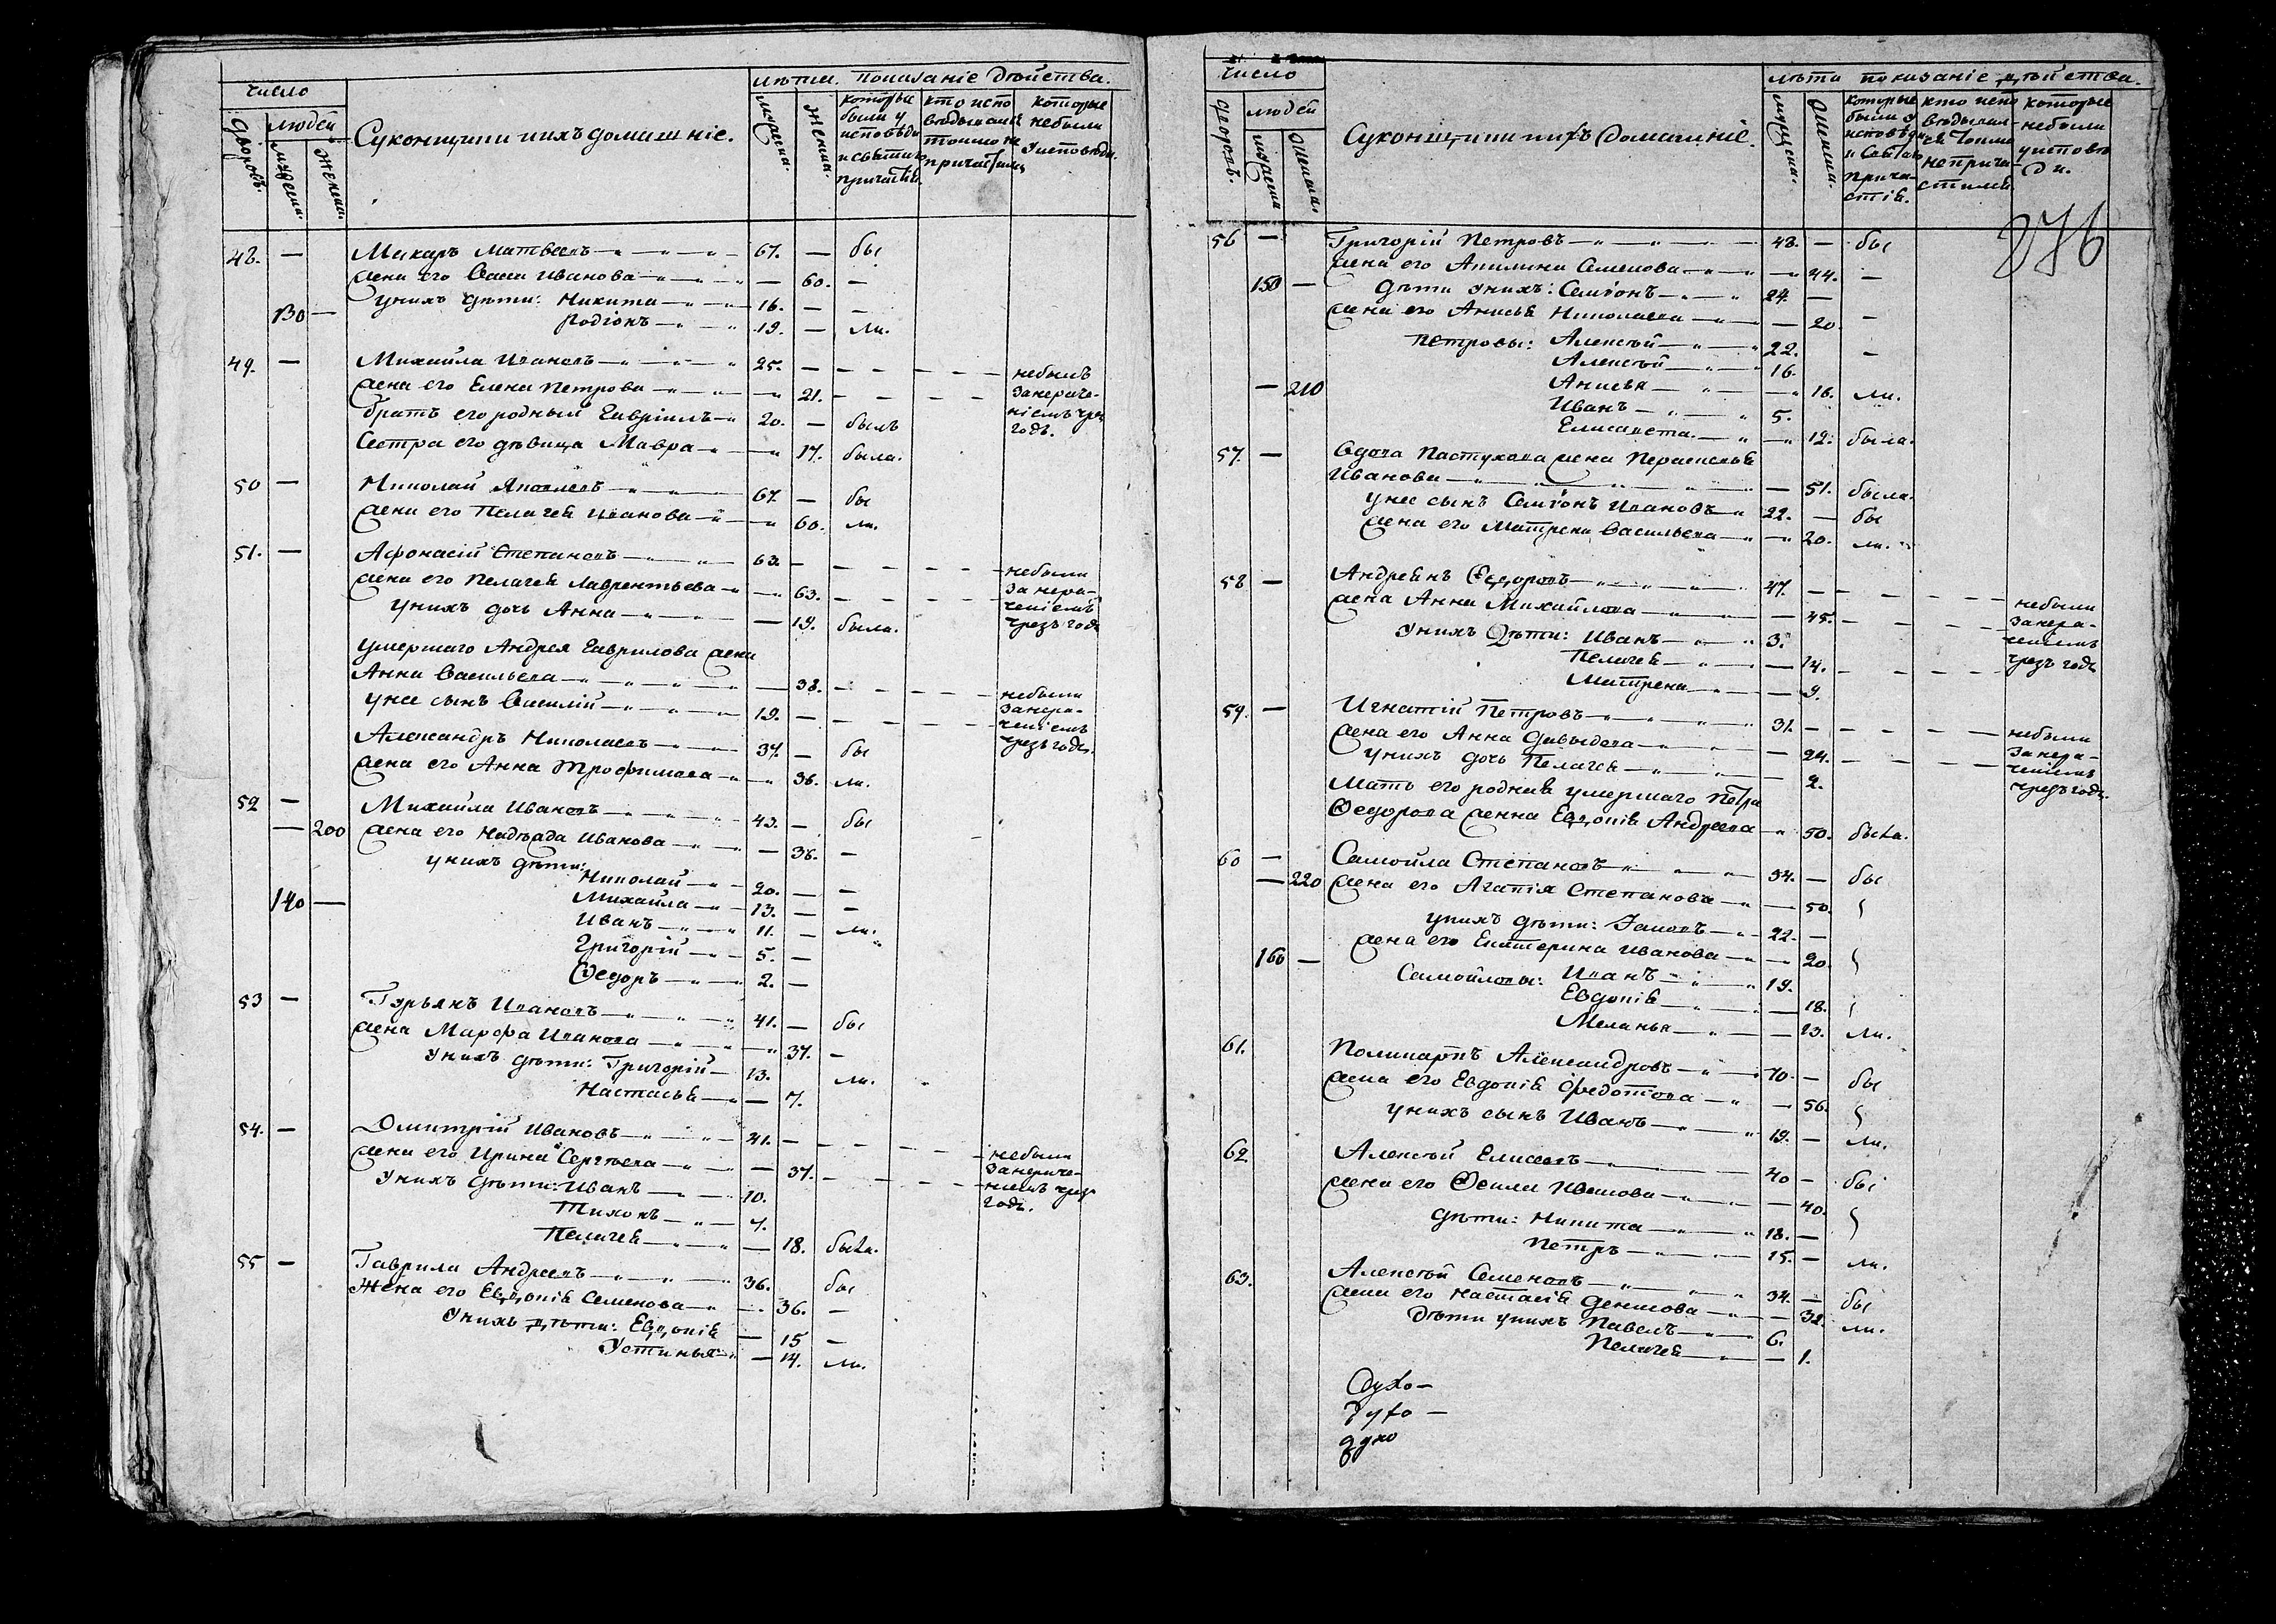 число
людей
дворовъ.
мужеска.
женска.
Суконщики и ихъ домашніе.
лѣта. показаніе дѣйства.
мужеска.
женска.
которые были у исповѣди и святаго причастія.
кто исповѣдывался токмо не причастился
которые не были у исповѣди.
48. — Макаръ Матвеевъ 67. — бы
жена его Васса Иванова — 60. —
130 — у нихъ дѣти: Никита 16. — —
Родіонъ 19. — ли.
49. — Михайла Ивановъ 25. — — — небылъ
жена его Елена Петрова — 21. — — за нераче-
братъ его родный Гавріилъ 20. — былъ ніемъ чрез
Сестра его дѣвица Мавра — 17. была. годъ.
50 — Николай Яковлевъ 67. — бы
жена его Пелагея Иванова — 60. ли.
51. — Афонасій Степановъ 63. — — — небыли
жена его Пелагея Лаврентьева — 63. — — за нера-
у нихъ дочь Анна — 19. была. ченіемъ чрезъ годъ
умершаго Андрея Гаврилова жена
Анна Васильева — 38. — — небыли
у нее сынъ Василій 19. — — — за нера-
ченіемъ
Александръ Николаевъ 37. — бы чрезъ годъ.
жена его Анна Трофимова — 36. ли.
52 — Михайла Ивановъ 43. — бы
— 200 жена его Надежда Иванова — 38. —
у нихъ дѣти:
Николай 20. — —
140 — Михайла 13. — —
Иванъ 11. — ли.
Григорій 5. —
Ѳедоръ 2. —
53 — Гурьянъ Ивановъ 41. — бы
жена Марфа Иванова — 37. —
у нихъ дѣти: Григорій 13. ли.
Настасья — 7.
54. — Дмитрій Ивановъ 41. — — — небыли
жена его Ирина Сергѣева — 37. — — за нераче-
у нихъ дѣти: Иванъ 10. ніемъ чрез
Тихонъ 7. годъ.
Пелагея — 18. была.
55 — Гаврила Андреевъ 36. бы
Жена его Евдокія Семенова — 36. —
У нихъ дѣти: Евдокія — 15 —
Устинья — 14. ли.
число
людей
дворовъ.
мужеска
женска.
Суконщики и ихъ домашніе.
лѣта показаніе дѣйства.
мужеска.
женска.
которые были у исповѣди и святаго причастія.
кто исповѣдывался токмо не причастился
которые небыли у исповѣди.
276
56 — Григорій Петровъ 48. — бы
жена его Акилина Семенова — 44. —
150 — дѣти у нихъ: Семіонъ 24 —
жена его Анисья Николаева — 20. —
Петровы: Алексѣй 22. —
Алексѣй 16.
— 210 Анисья — 16. ли.
Иванъ 5.
Елисавета — 12. была.
57. — Вдова Пастухова жена Парасковья
Иванова — 51. была.
у нее сынъ Семіонъ Ивановъ 22. — бы
жена его Матрена Васильева — 20. ли.
58 — Андреянъ Ѳедоровъ 47. — — — небыли
жена Анна Михайлова — 45. — — за нера-
У нихъ Дѣти: Иванъ 3. ченіемъ
Пелагея — 14. — — чрезъ годъ
Матрена — 9.
59. — Игнатій Петровъ 31. — — — небыли
жена его Анна Давыдова — 24. — — за нера-
у нихъ дочь Пелагея — 2. ченіемъ
Мать его родная умершаго Петра чрезъ годъ.
Ѳедорова женна Евдокія Андреева 50. была.
60 — Самойла Степановъ 54. — бы
— 220 жена его Агапія Степанова — 50.
у нихъ дѣти: Iаковъ 22. —
жена его Екатерина Иванова — 20.
160 — Самойловы: Иванъ 19.
Евдокія — 18.
Меланья — 13. ли.
61. Поликарпъ Александровъ 70. — бы
жена его Евдокія Федотова — 56.
у нихъ сынъ Иванъ 19. — ли.
62 Алексѣй Елисеевъ 40 — бы
жена его Ѳекла Иванова — 40.
дѣти: Никита 18. —
Петръ 15. — ли.
63. Алексѣй Семеновъ 34. — бы
жена его Настасія Денисова — 32. ли.
Дѣти у нихъ Павелъ 6.
Пелагея — 1.
Духо —
Духо —
духо